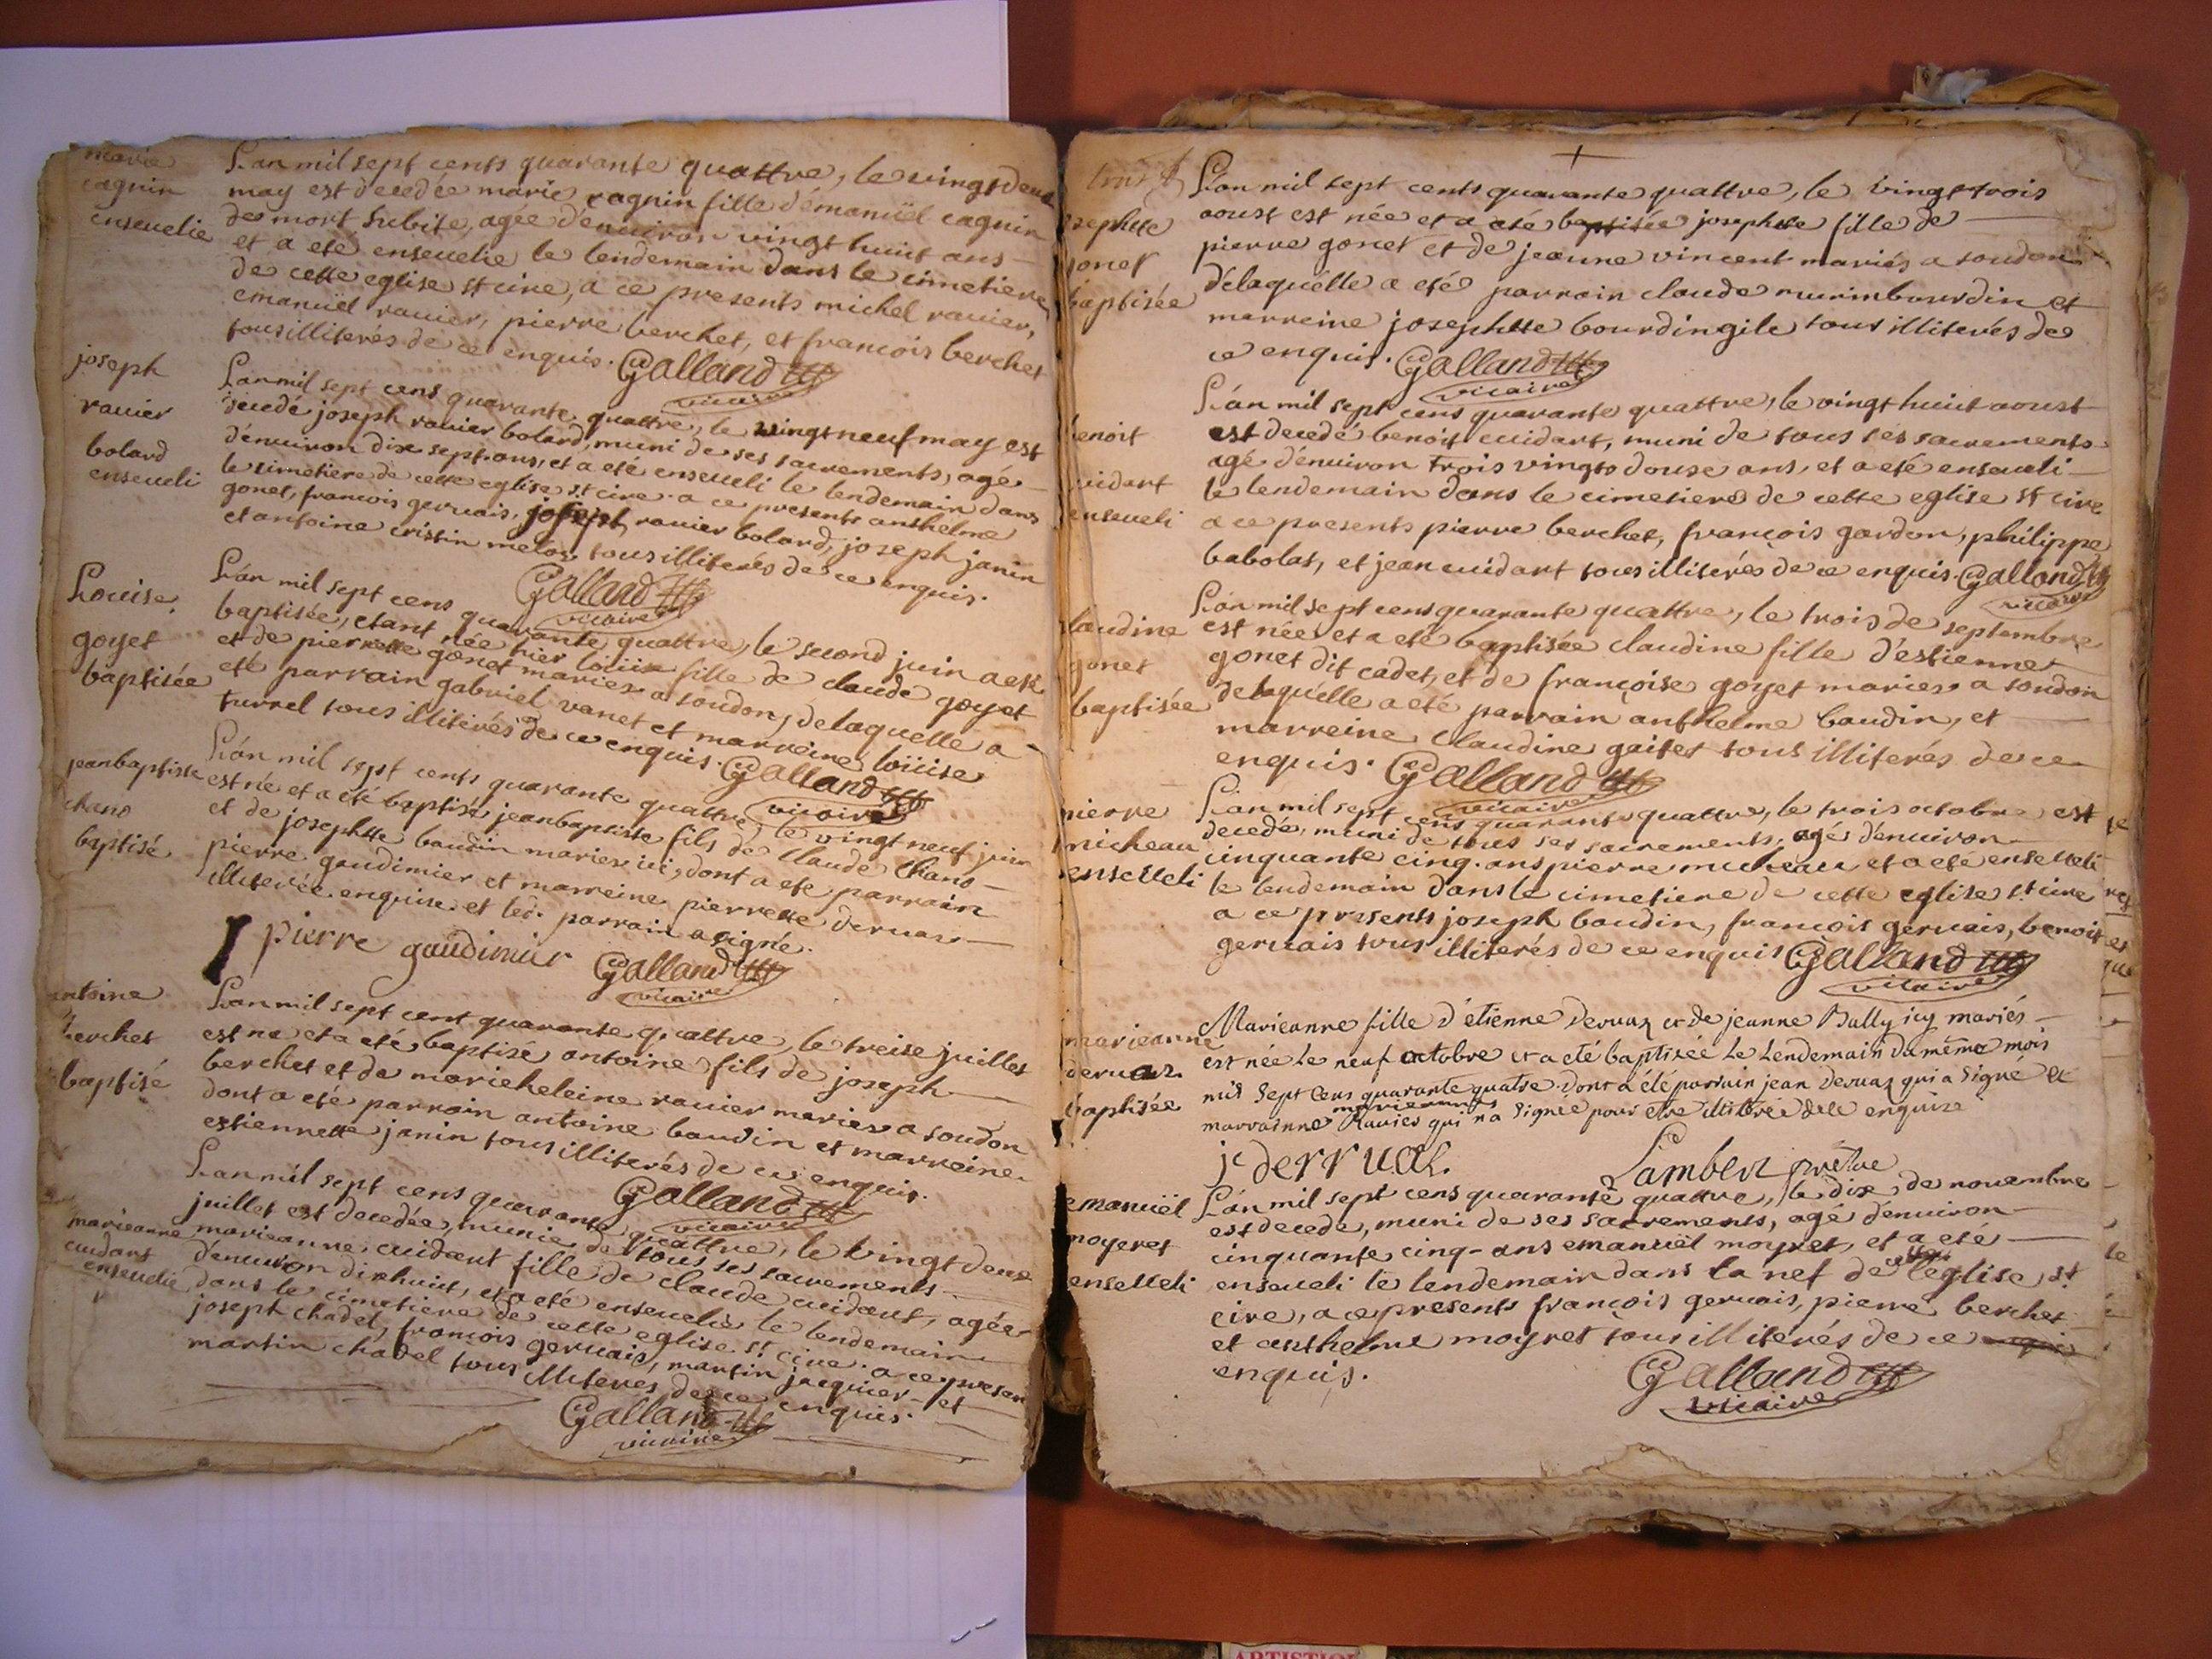 marie
cagnin
enseuelie
L'an mil sept cents quarante quattre, le vingt deux
may est decedée marie cagnin fille d'émanuël cagnin
de mort subite, agée d'enuiron vingt huit ans
et a eté enseuelie le lendemain dans le cimetiere
de cette eglise st cire, a ce presents michel rauier,
emanuël rauier, pierre berchet, et francois berchet
tous illiterés de ce enquis. Galland
vicaire
joseph
rauier
bolard
enseueli
L'an mil sept cens quarante quattre, le vingt neuf may est
decedé joseph rauier bolard, muni de ses sacrements, agé
d'enuiron dix sept ans, et a eté enseueli le lendemain dans
le cimetiere de cette eglise st cire. a ce presents anthelme
gonet, francois geruais, joseph rauier bolard, joseph janin
et antoine cristin melor tous illiterés de ce enquis.
Galland
vicaire
Louise
goyet
baptisée
L'an mil sept cens quarante quattre, le second juin a eté
baptisée, etant née hier loüise fille de claude goyet
et de pierrette gonet mariez a soudon, de laquelle a
eté parrain gabriel vanet et marreine loüise
turrel tous illiterés de ce enquis. Galland
vicaire
jeanbaptiste
chano
baptisé
L'an mil sept cents quarante quattre, le vingt neuf juin
est né et a eté baptisé jeanbaptiste fils de claude chano
et de josephtte baudin mariez ici, dont a eté parrain
pierre gaudimier et marreine pierrette deruas
illiterée enquise et led. parrain a signé.
pierre gaudimier Galland
vicaire
antoine
berchet
baptisé
L'an mil sept cent quarante quattre, le treise juillet
est né et a eté baptisé antoine fils de joseph
berchet et de marieheleine rauier mariez a soudon
dont a eté parrain antoine baudin et marreine
estiennette janin tous illiterés de ce enquis.
Galland
vicaire
marieanne
cuidart
enseuelie
L'an mil sept cens quarante quattre, le vingt deux
juillet est decedée, munie de tous ses sacrements
marieanne cuidart fille de claude cuidart, agée
d'enuiron dixhuit, et a eté enseuelie le lendemain
dans le cimetiere de cette eglise st cire. a ce presen
joseph chadel, francois geruais, martin jacquier et
martin chadel tous illiteres de ce enquis.
Galland
vicaire
josephtte
gonet
baptisée
L'an mil sept cents quarante quattre, le vingt trois
aoust est née et a eté baptisée josephtte fille de
pierre gonet et de jeanne vincent mariés a soudon
délaquélle a eté parrain claude murimbourdin et
marreine josephtte bourdingile tous illiterés de
ce enquis. Galland
vicaire
benoit
cuidart
enseueli
L'an mil sept cens quarante quattre, le vingt huit aoust
est decedé benoit cuidart, muni de tous ses sacrements
agé d'enuiron trois vingts douse ans, et a eté enseueli
le lendemain dans le cimetiere de cette eglise st cire
a ce presents pierre berchet, françois gardon, philippe
babolat, et jean cuidart tous illiterés de ce enquis. Galland
vicaire
claudine
gonet
baptisée
L'an mil sept cens quarante quattre, le trois de septembre
est née et a eté baptisée claudine fille d'éstienne
gonet dit cadet, et de françoise goyet mariez a soudon
delaquelle a eté parrain anthelme baudin, et
marreine claudine gaitet tous illiterés de ce
enquis. Galland
vicaire
pierre
micheau
enseueli
L'an mil sept cens quarante quattre, le trois octobre est
decedé, muni de tous ses sacrements, agé d'enuiron
cinquante cinq ans pierre micheau et a eté enseueli
le lendemain dans le cimetiere de cette eglise st cire
a ce presents joseph baudin, françois geruais, benoit
geruais tous illiterés de ce enquis Galland
vicaire
marieanne
deruaz
baptisée
Marieanne fille d'étienne Deruaz et de jeanne Bally icy mariés
est née le neuf octobre et a eté baptisée le lendemain du même mois
mil sept cens quarante quatre. dont a été parrain jean Deruaz qui a signé et
marrainne marieanne Rauier qui n'a signée pour etre illiterée dele enquize
j derruaz. Lambert prêtre
emanuël
moyeret
enseueli
L'an mil sept cens quarante quattre, le dix de nouembre
est decedé, muni de ses sacrements, agé d'enuiron
cinquante cinq ans emanuël moyret, et a eté
enseueli le lendemain dans la nef de cette église st
cire, a ce presents françois geruais, pierre berchet
et anthelme moyret tous illiterés de ce
enquis. Galland
vicaire